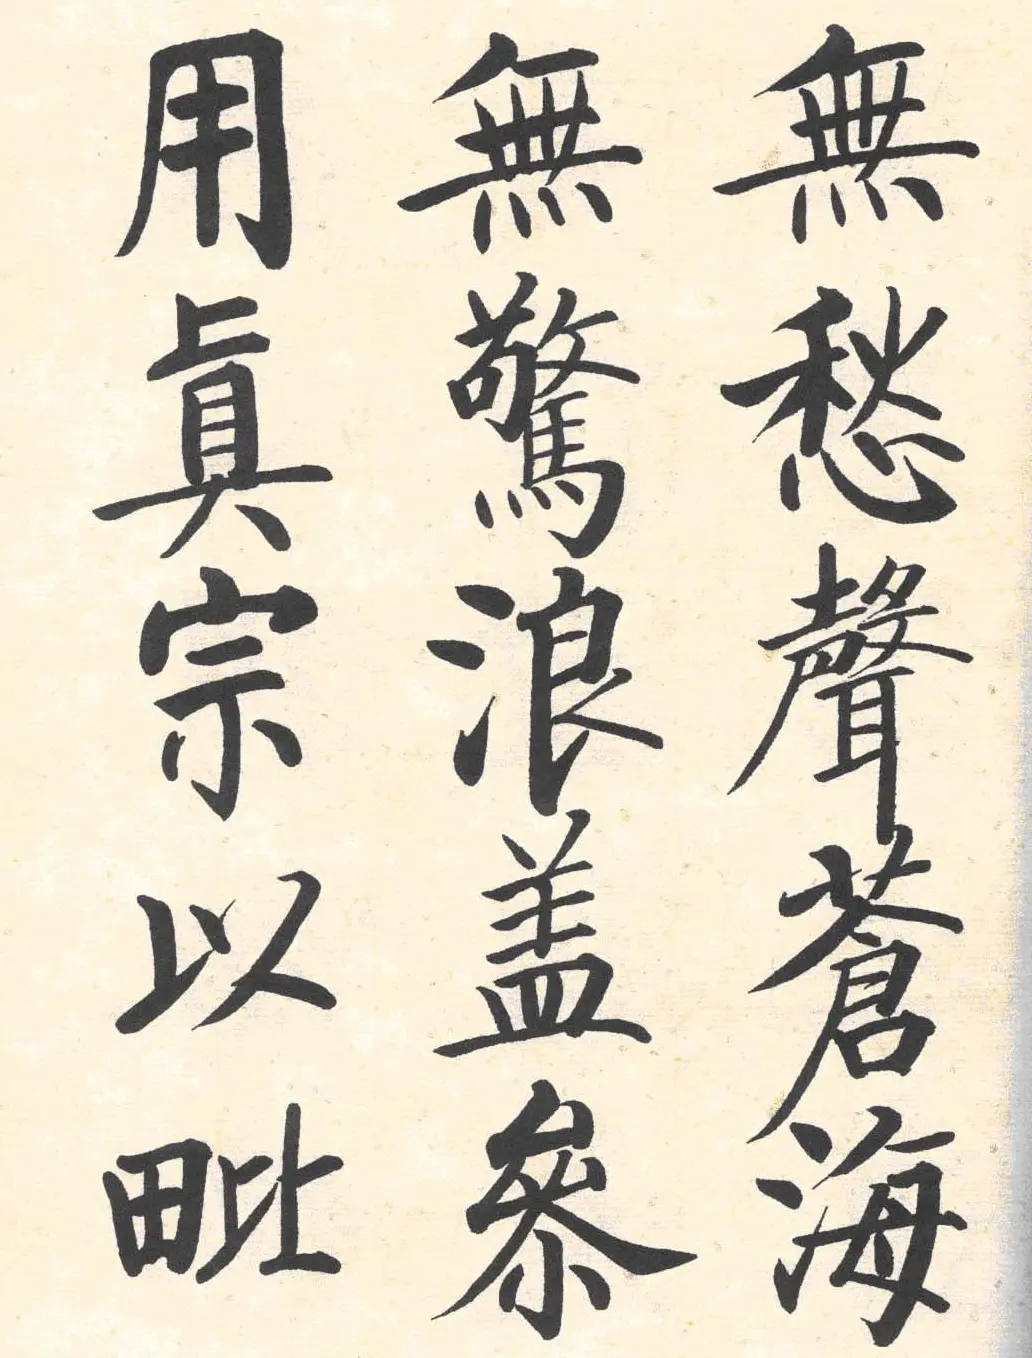 無愁聲蒼海
無驚浪盖叅
用眞宗以毗